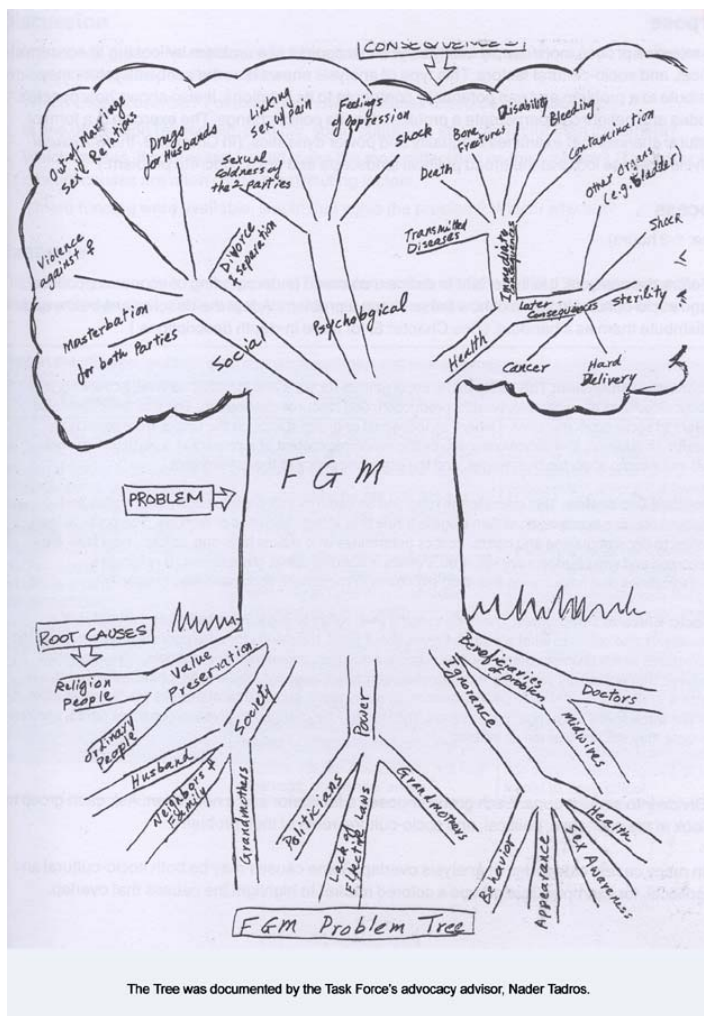 CONSEQUENCES
Outsy-Marriage
Sexual Relations
Drugs
for Husbands
Linking
Sex w/Pain
Feelings
of oppression
Sexual
Coldness of
the 2 parties
Violence
against
Divorce
& separation
Masterbation
for both Parties
Social
Psychological
Shock
Death
Bone
Fractures
Disability
Bleeding
Contamination
Other Organs
(e.g. Bladder)
Transmitted
Diseases
Immediate
Consequences
Shock
Later
Consequences
Sterility
Health
Cancer
Hard
Delivery
PROBLEM
FGM
ROOT CAUSES
Value
Preservation
Religion
People
Ordinary
People
Society
Husband
Neighbors &
Family
Grandmothers
Power
Politicians
Lack of
Effective
Grandmothers
Beneficiaries
of problem
Doctors
Midwives
Ignorance
Behavior
Appearance
Sex Awareness
Health
FGM Problem Tree
The Tree was documented by the Task Force's advocacy advisor, Nader Tadros.